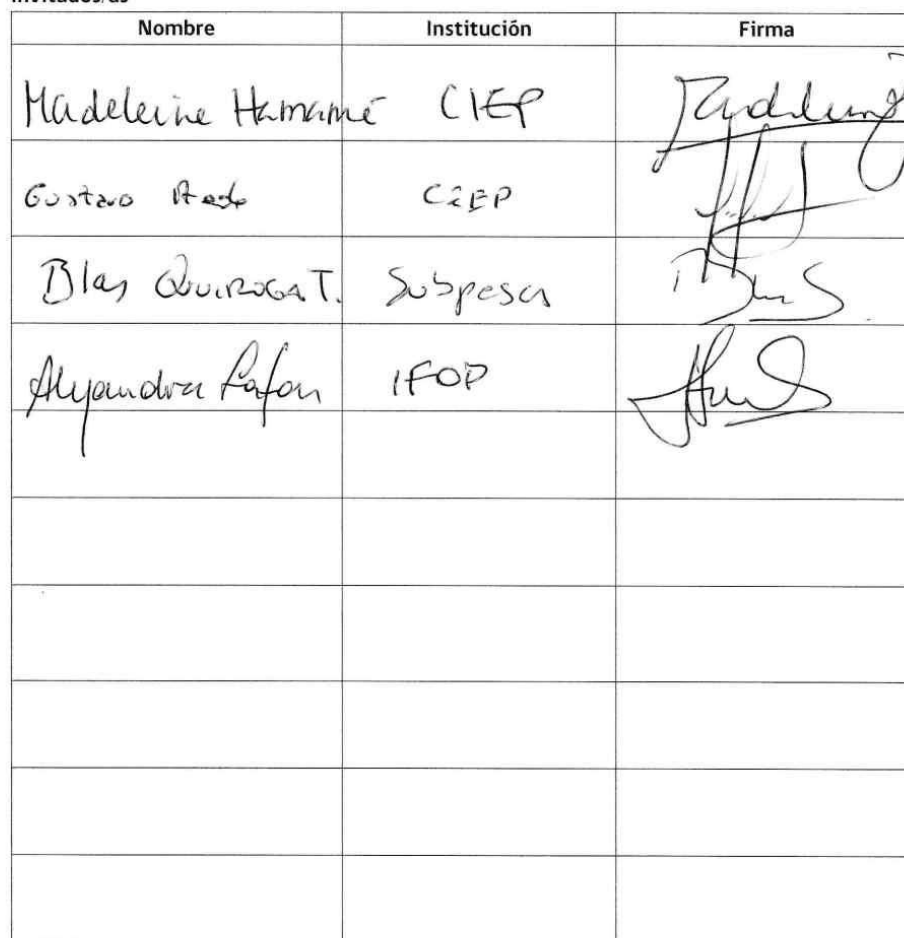 Invitados/as
Nombre Institución Firma
Madeleine Hamamé CIEP
Gustavo CIEP
Blas Quiroga T. Subpesca
Alejandra Lafon IFOP